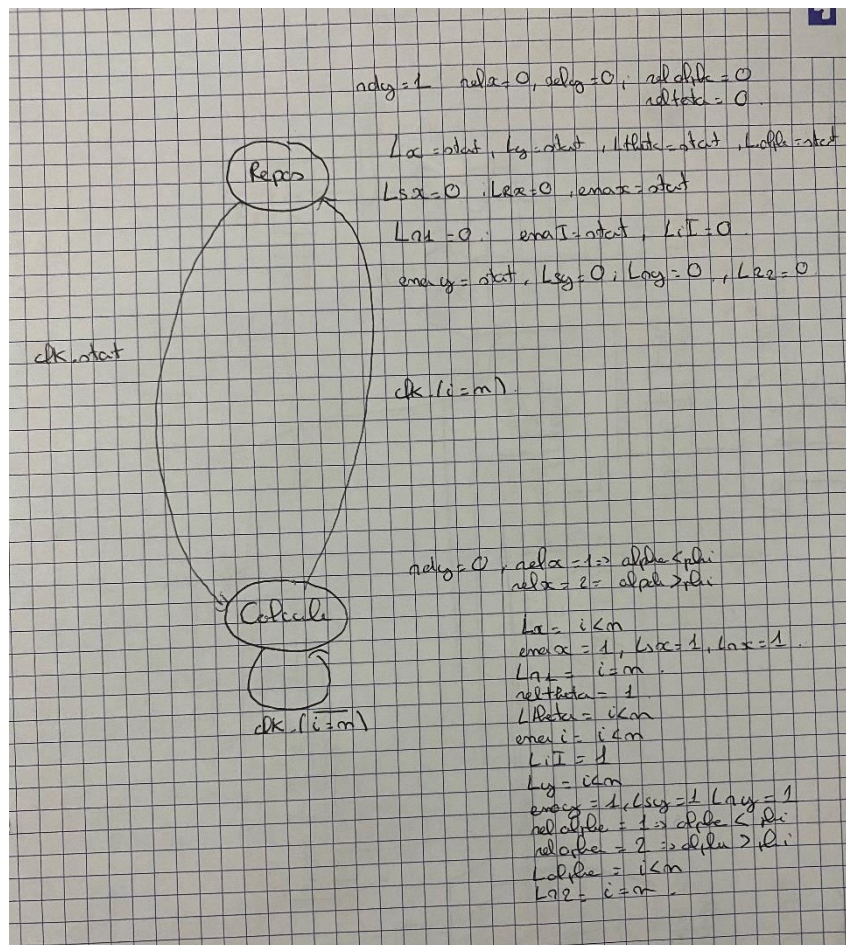 rdy=1 selx=0, sely=0, selalpha=0
seltheta=0
Lx=start, Ly=start, Ltheta=start, Lalpha=start
Repos
Lsx=0, LRx=0, enax=start
Lr1=0 enaI=start, LiI=0
enay=start, Lsy=0, Lry=0, Lr2=0
clk.start
clk.(i=n)
rdy=0, selx=1=> alpha<phi
selx=2= alpha>phi
Calcule
Lx= i<n
enax=1, Lsx=1, Lrx=1
Lr1= i=n
seltheta=1
Ltheta=i<n
clk.(i̅=̅n̅)
enai=i<n
LiI=1
Ly=i<n
enay=1, Lsy=1 Lry=1
selalphe=1=>alpha<phi
selalphe=2=>alpha>phi
Lalphe=i<n
Lr2= i=n.